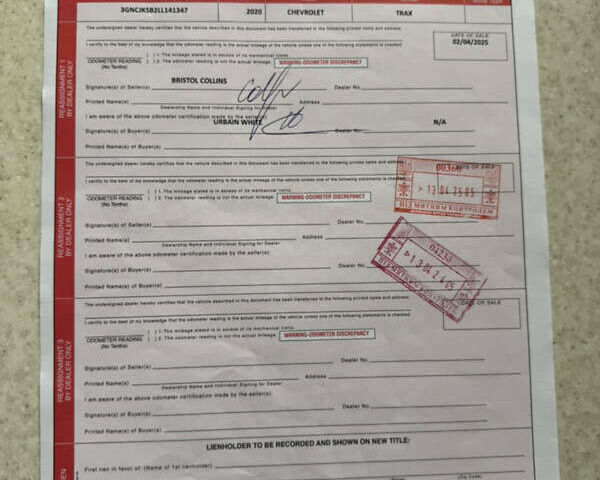 3GNCJKSB2LL141347 2020 CHEVROLET TRAX
The undersigned dealer hereby certifies that the vehicle described in this document has been transferred to the following printed name and address
I certify to the best of my knowledge that the odometer reading is the actual mileage of the vehicle unless one of the following statements is checked
DATE OF SALE
02/04/2025
REASSIGNMENT 1
BY DEALER ONLY
ODOMETER READING
(No Tenths)
1. The mileage stated is in excess of its mechanical limits.
2. The odometer reading is not the actual mileage. WARNING-ODOMETER DISCREPANCY
BRISTOL COLLINS
Signature(s) of Seller(s) Dealer No.
Printed Name(s) Address
Dealership Name and Individual Signing for Dealer
I am aware of the above odometer certification made by the seller(s)
URBAIN WHITE N/A
Signature(s) of Buyer(s) Dealer No.
Printed Name(s) of Buyer(s)
The undersigned dealer hereby certifies that the vehicle described in this document has been transferred to the following printed name and address
I certify to the best of my knowledge that the odometer reading is the actual mileage of the vehicle unless one of the following statements is checked
DATE OF SALE
REASSIGNMENT 2
BY DEALER ONLY
ODOMETER READING
(No Tenths)
1. The mileage stated is in excess of its mechanical limits.
2. The odometer reading is not the actual mileage. WARNING-ODOMETER DISCREPANCY
Signature(s) of Seller(s) Dealer No.
Printed Name(s) Address
Dealership Name and Individual Signing for Dealer
I am aware of the above odometer certification made by the seller(s)
Signature(s) of Buyer(s)
Printed Name(s) of Buyer(s)
ПІД МИТНИМ КОНТРОЛЕМ
ПІД МИТНИМ КОНТРОЛЕМ
The undersigned dealer hereby certifies that the vehicle described in this document has been transferred to the following printed name and address
I certify to the best of my knowledge that the odometer reading is the actual mileage of the vehicle unless one of the following statements is checked
DATE OF SALE
REASSIGNMENT 3
BY DEALER ONLY
ODOMETER READING
(No Tenths)
1. The mileage stated is in excess of its mechanical limits.
2. The odometer reading is not the actual mileage. WARNING-ODOMETER DISCREPANCY
Signature(s) of Seller(s) Dealer No.
Printed Name(s) Address
Dealership Name and Individual Signing for Dealer
I am aware of the above odometer certification made by the seller(s)
Signature(s) of Buyer(s) Dealer No.
Printed Name(s) of Buyer(s)
LIENHOLDER TO BE RECORDED AND SHOWN ON NEW TITLE:
First lien in favor of: (Name of 1st lienholder)